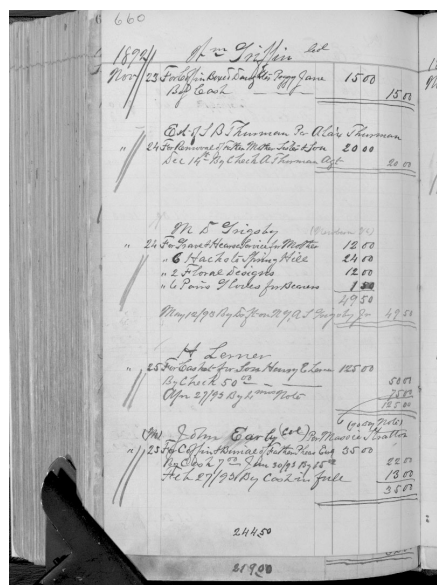 660
1892 Wm Griffin Col
Nov 23 For Coffin Box &c Daughter Peggy Jane 15 00
By Cash 15 00
Est of S B Thurman Per Alex Thurman
" 24 For Removal of Father Mother Sister & Son 20 00
Dec 14th By Check A Thurman Agt 20 00
M D Grigsby
" 24 For Grave & Hearse Service for Mother 12 00
" 6 Hacks to Spring Hill 24 00
" 2 Floral Designs 12 00
" 6 Pairs Gloves for Bearers 1 50
49 50
May 12/93 By N.Y. A S Grigsby Jr 49 50
H Lerner
" 25 For Casket for Son Henry Lerner 125 00
By Check 50 00 50 00
Apr 27/93 By Note 75 00
125 00
(90 day Note)
John Early Col Per Stratton
" 25 For Coffin & Burial of Father 35 00
By Cash 7 00 Jan 30/93 By 15 00 22 00
Feb 27/93 By Cash in full 13 00
35 00
244 50
219 00